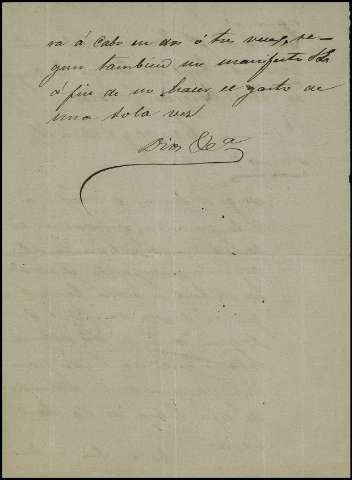 va á cabo en dos ó tres veces, se-
gun tambien me manifestó Sr.
á fin de no hacer el gasto de
una sola vez
Dios &a